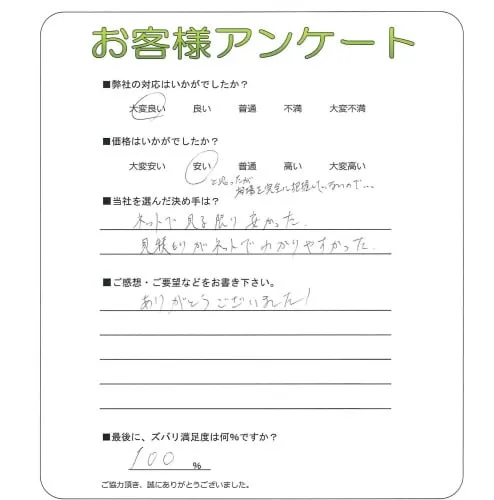 お客様アンケート
■弊社の対応はいかがでしたか？
大変良い 良い 普通 不満 大変不満
■価格はいかがでしたか？
大変安い 安い 普通 高い 大変高い
と思ったが
相場を完全に把握していないので...
■当社を選んだ決め手は？
ネットで見る限り安かった.
見積りがネットでわかりやすかった.
■ご感想・ご要望などをお書き下さい。
ありがとうございました!
■最後に、ズバリ満足度は何%ですか？
100 %
ご協力頂き、誠にありがとうございました。